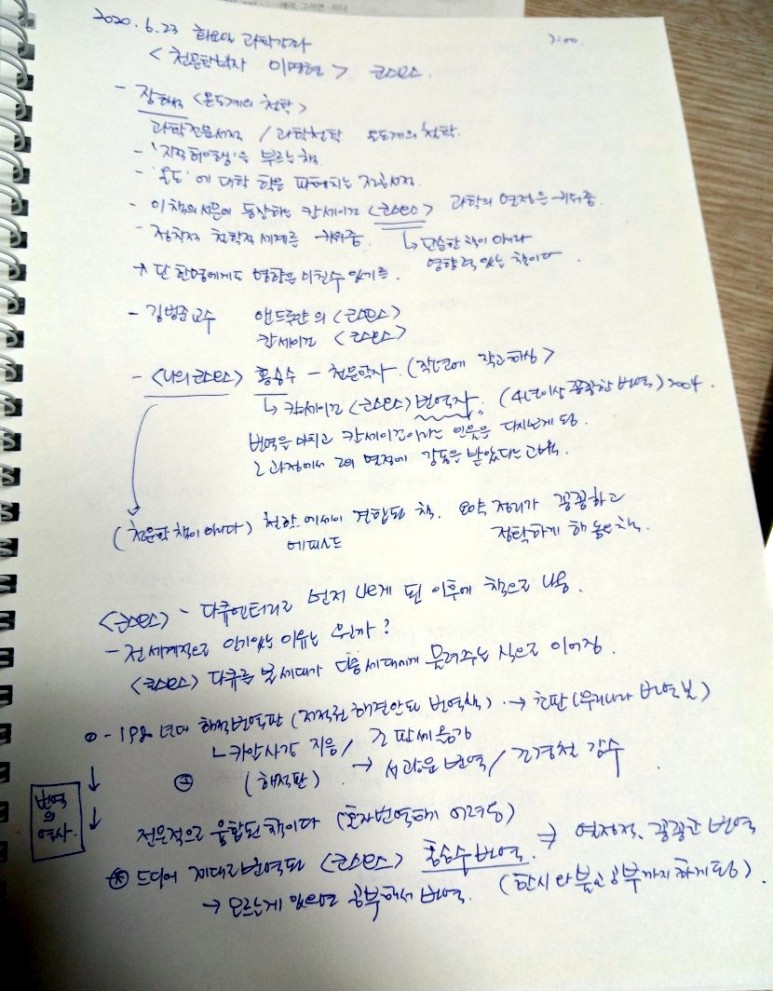 2020. 6. 23 화요일 과학강좌 7:00
< 천문학박자 이명현 > 코스모스
- 장하석 <온도계의 철학>
과학전문서적 / 과학철학 온도계의 철학.
- '지적허영'을 부르는 책
- '온도'에 대한 학을 파헤치는 전공서적
- 이 책의 서문에 등장하는 칼세이건 <코스모스> 과학의 열정을 키워줌.
- 정치적 철학적 세계를 키워줌. ↳ 단순한 책이 아니라
영향력 있는 책이다.
→ 단 한명에게도 영향을 미칠수 있기를
- 김범준교수 앤드루얀의 <코스모스>
칼세이건 <코스모스>
- <나의 코스모스> 홍승수 - 천문학자. (작년에 작고하심>
↳ 칼세이건 <코스모스> 번역자. (4년이상 꼼꼼한 번역) 2004.
번역을 마치고 칼세이건이라는 인물을 다시보게 됨.
그 과정에서 그의 열정에 감동을 받았다는 고백.
(천문학 책이 아니다) 철학. 에세이 결합된 책. 요약 정리가 꼼꼼하고
에피소드 정확하게 해 놓은 책.
<코스모스> - 다큐멘터리로 먼저 나오게 된 이후에 책으로 나옴.
- 전세계적으로 인기있는 이유는 뭔가?
<코스모스> 다큐를 본 세대가 다음세대에게 물려주는 식으로 이어짐.
⊙ - 198 년대 해적번역판 (저작권 해결안된 번역책) → 초판 (우리나라 번역본)
ㄴ 카안사강 지음 / 옮김
(해적판) → 서광운 번역 / 조경철 감수
번역의 역사.
전문적으로 융합된 책이다 (혼자번역하기 어려움)
⊛ 드디어 제대로 번역된 <코스모스> 홍승수 번역. → 열정적, 꼼꼼한 번역
→ 모르는게 있으면 공부해서 번역. (한시 라 불어 공부까지 하게 됨).